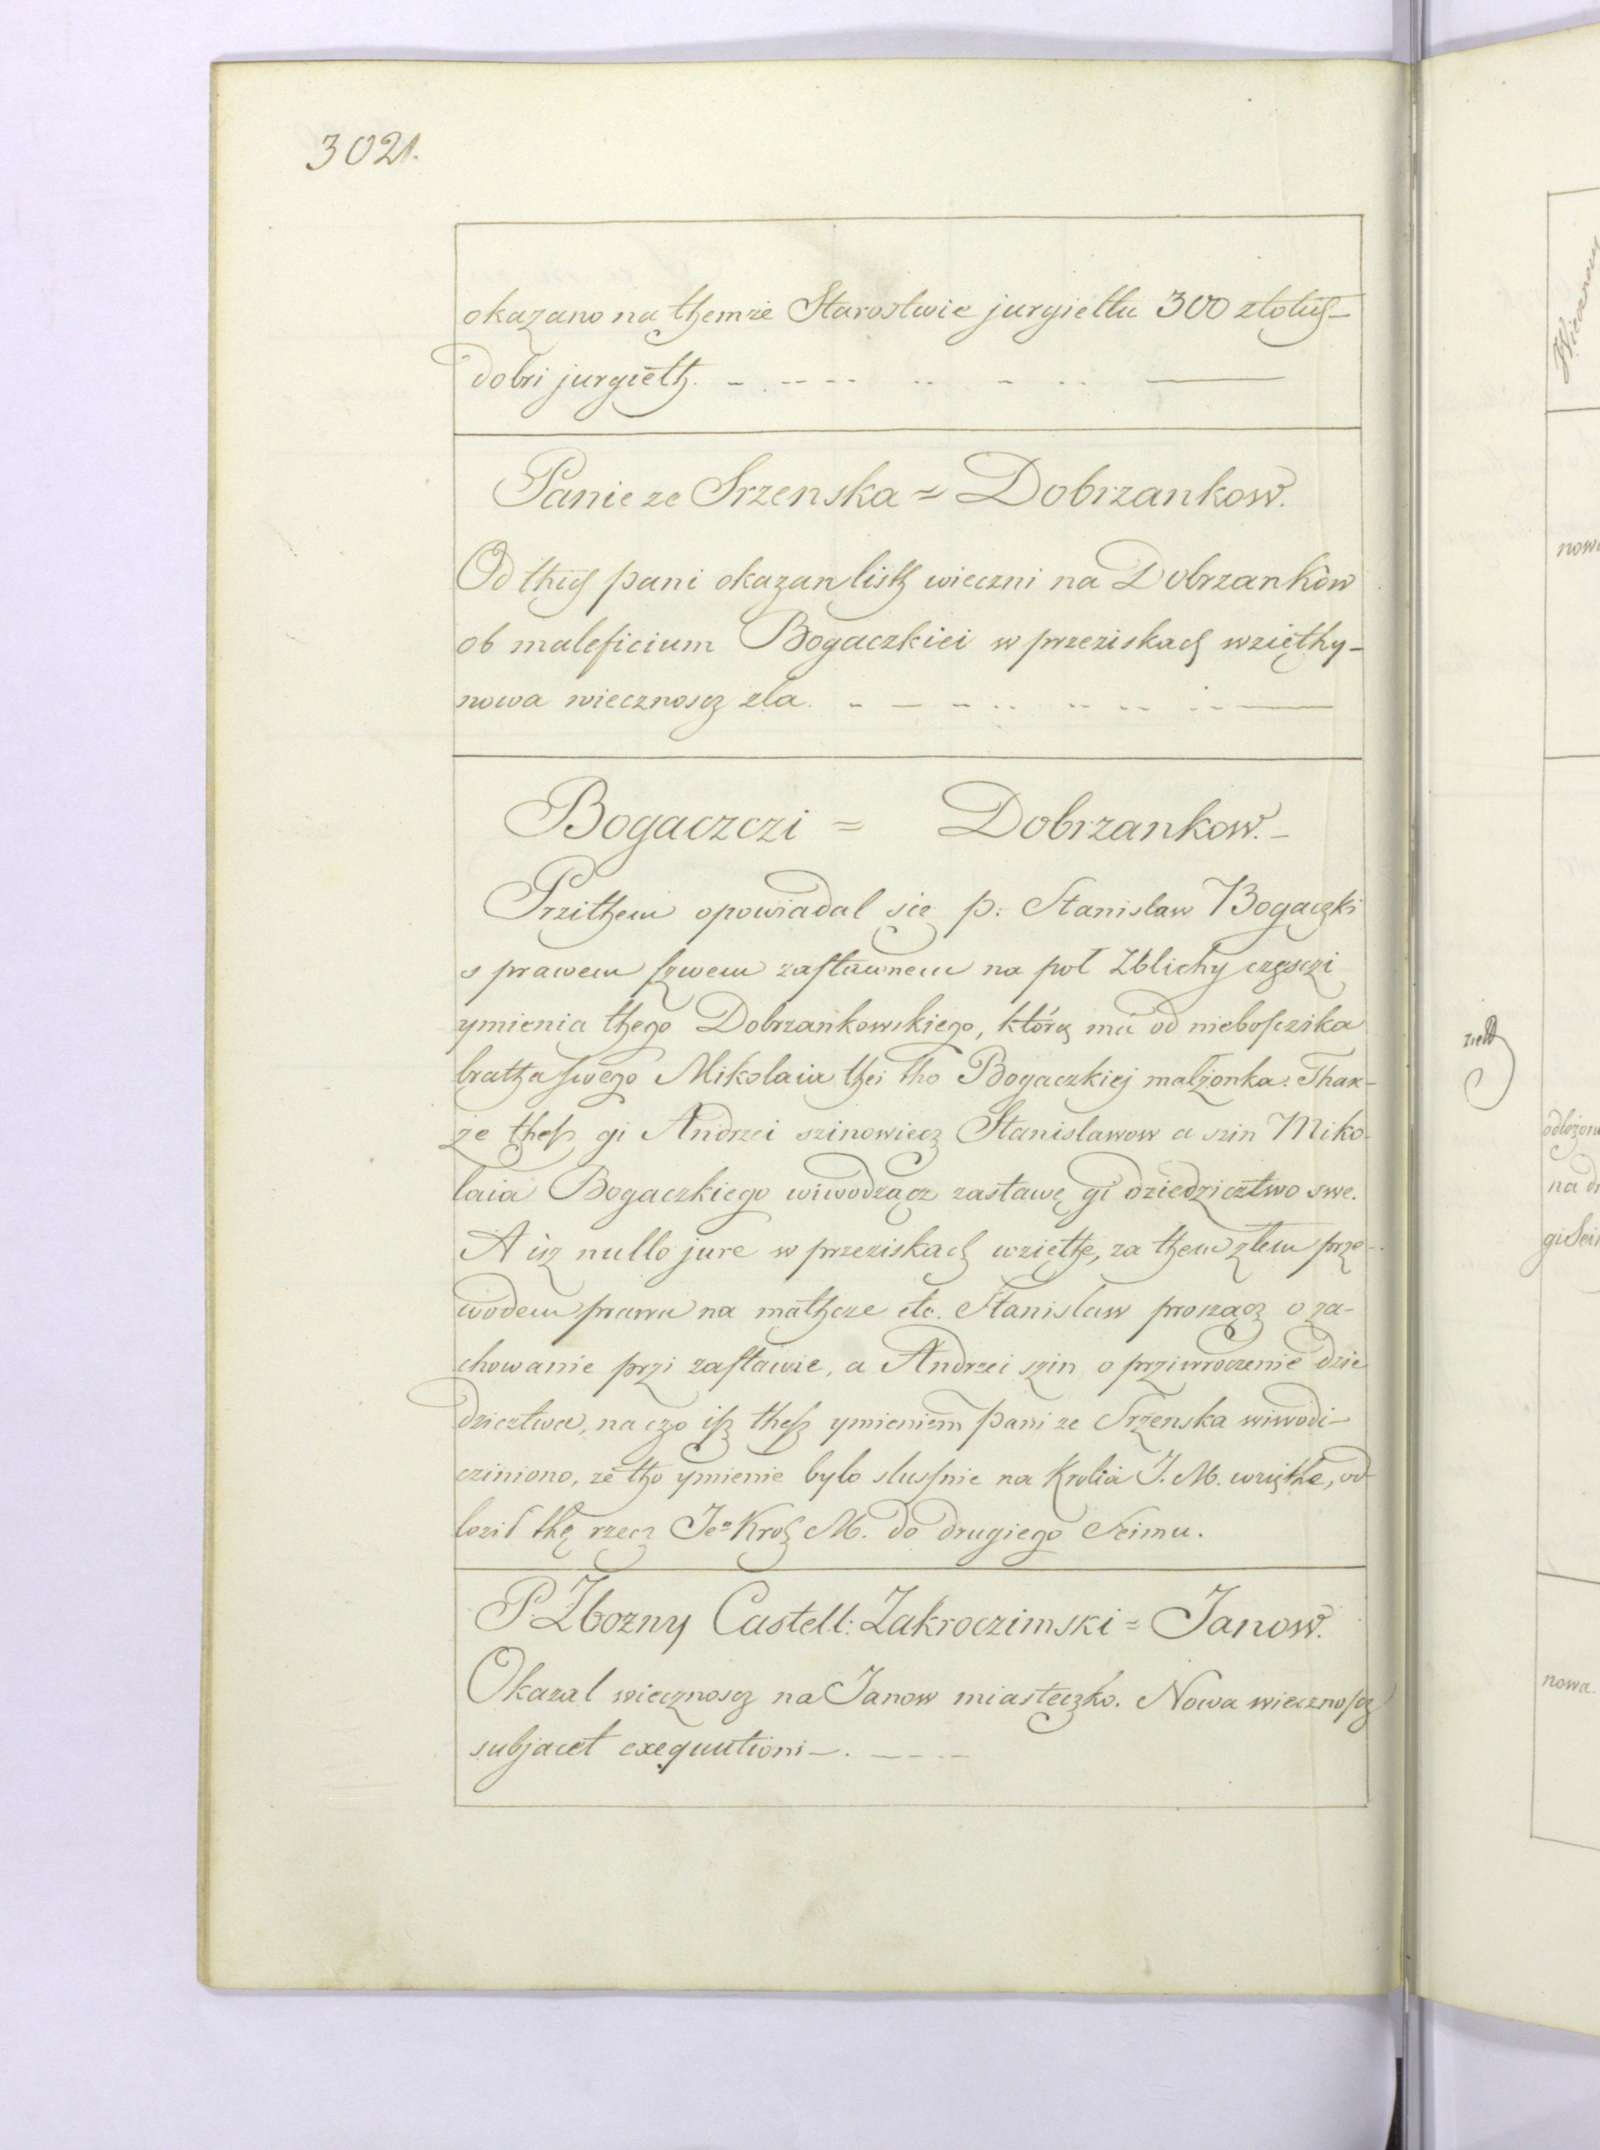 3021.
okazano na themże Starostwie jurgieltu 300 złotich
dobri jurgielth.
Panie ze Srzenska = Dobrzankow.
Od thich pani okazan listh wieczni na Dobrzankow
ob maleficium Bogaczkiei w przeziskach wzięthy-
nowa wiecznoscz zła.
Bogaczczi = Dobrzankow.
Przithem opowiadal się p: Stanislaw Bogaczki
s prawem szwem zastawnem na poł Zblichy częsczi
ymienia thego Dobrzankowskiego, którą ma od nieboszczika
bratha swego Mikolaia thei tho Bogaczkiej malżonka. Thak-
że thesz gi Andrzei szinowiecz Stanislawow a szin Miko-
laia Bogaczkiego wiwodzącz zastawę gi dziedzicztwo swe.
A isz nullo jure w przeziskach wzięthe, za them złem prze-
wodem prawa na mathcze etc. Stanislaw proszącz o za-
chowanie przi zastawie, a Andrzei szin o prziwroczenie dzie
dzicztwa, na czo isz thesz ymieniem pani ze Srzenska wiwodi-
cziniono, że tho ymienie bylo slusznie na Krolia J. M. wzięthe, od
lozil thę rzecz Jeo Krol M. do drugiego Seimu.
P Zbozny Castell: Zakroczimski = Janow.
Okazal wiecznoscz na Janow miasteczko. Nowa wiecznoscz
subjacet exequutioni
nowa
odlożona
na dr
gi Sei
nowa.